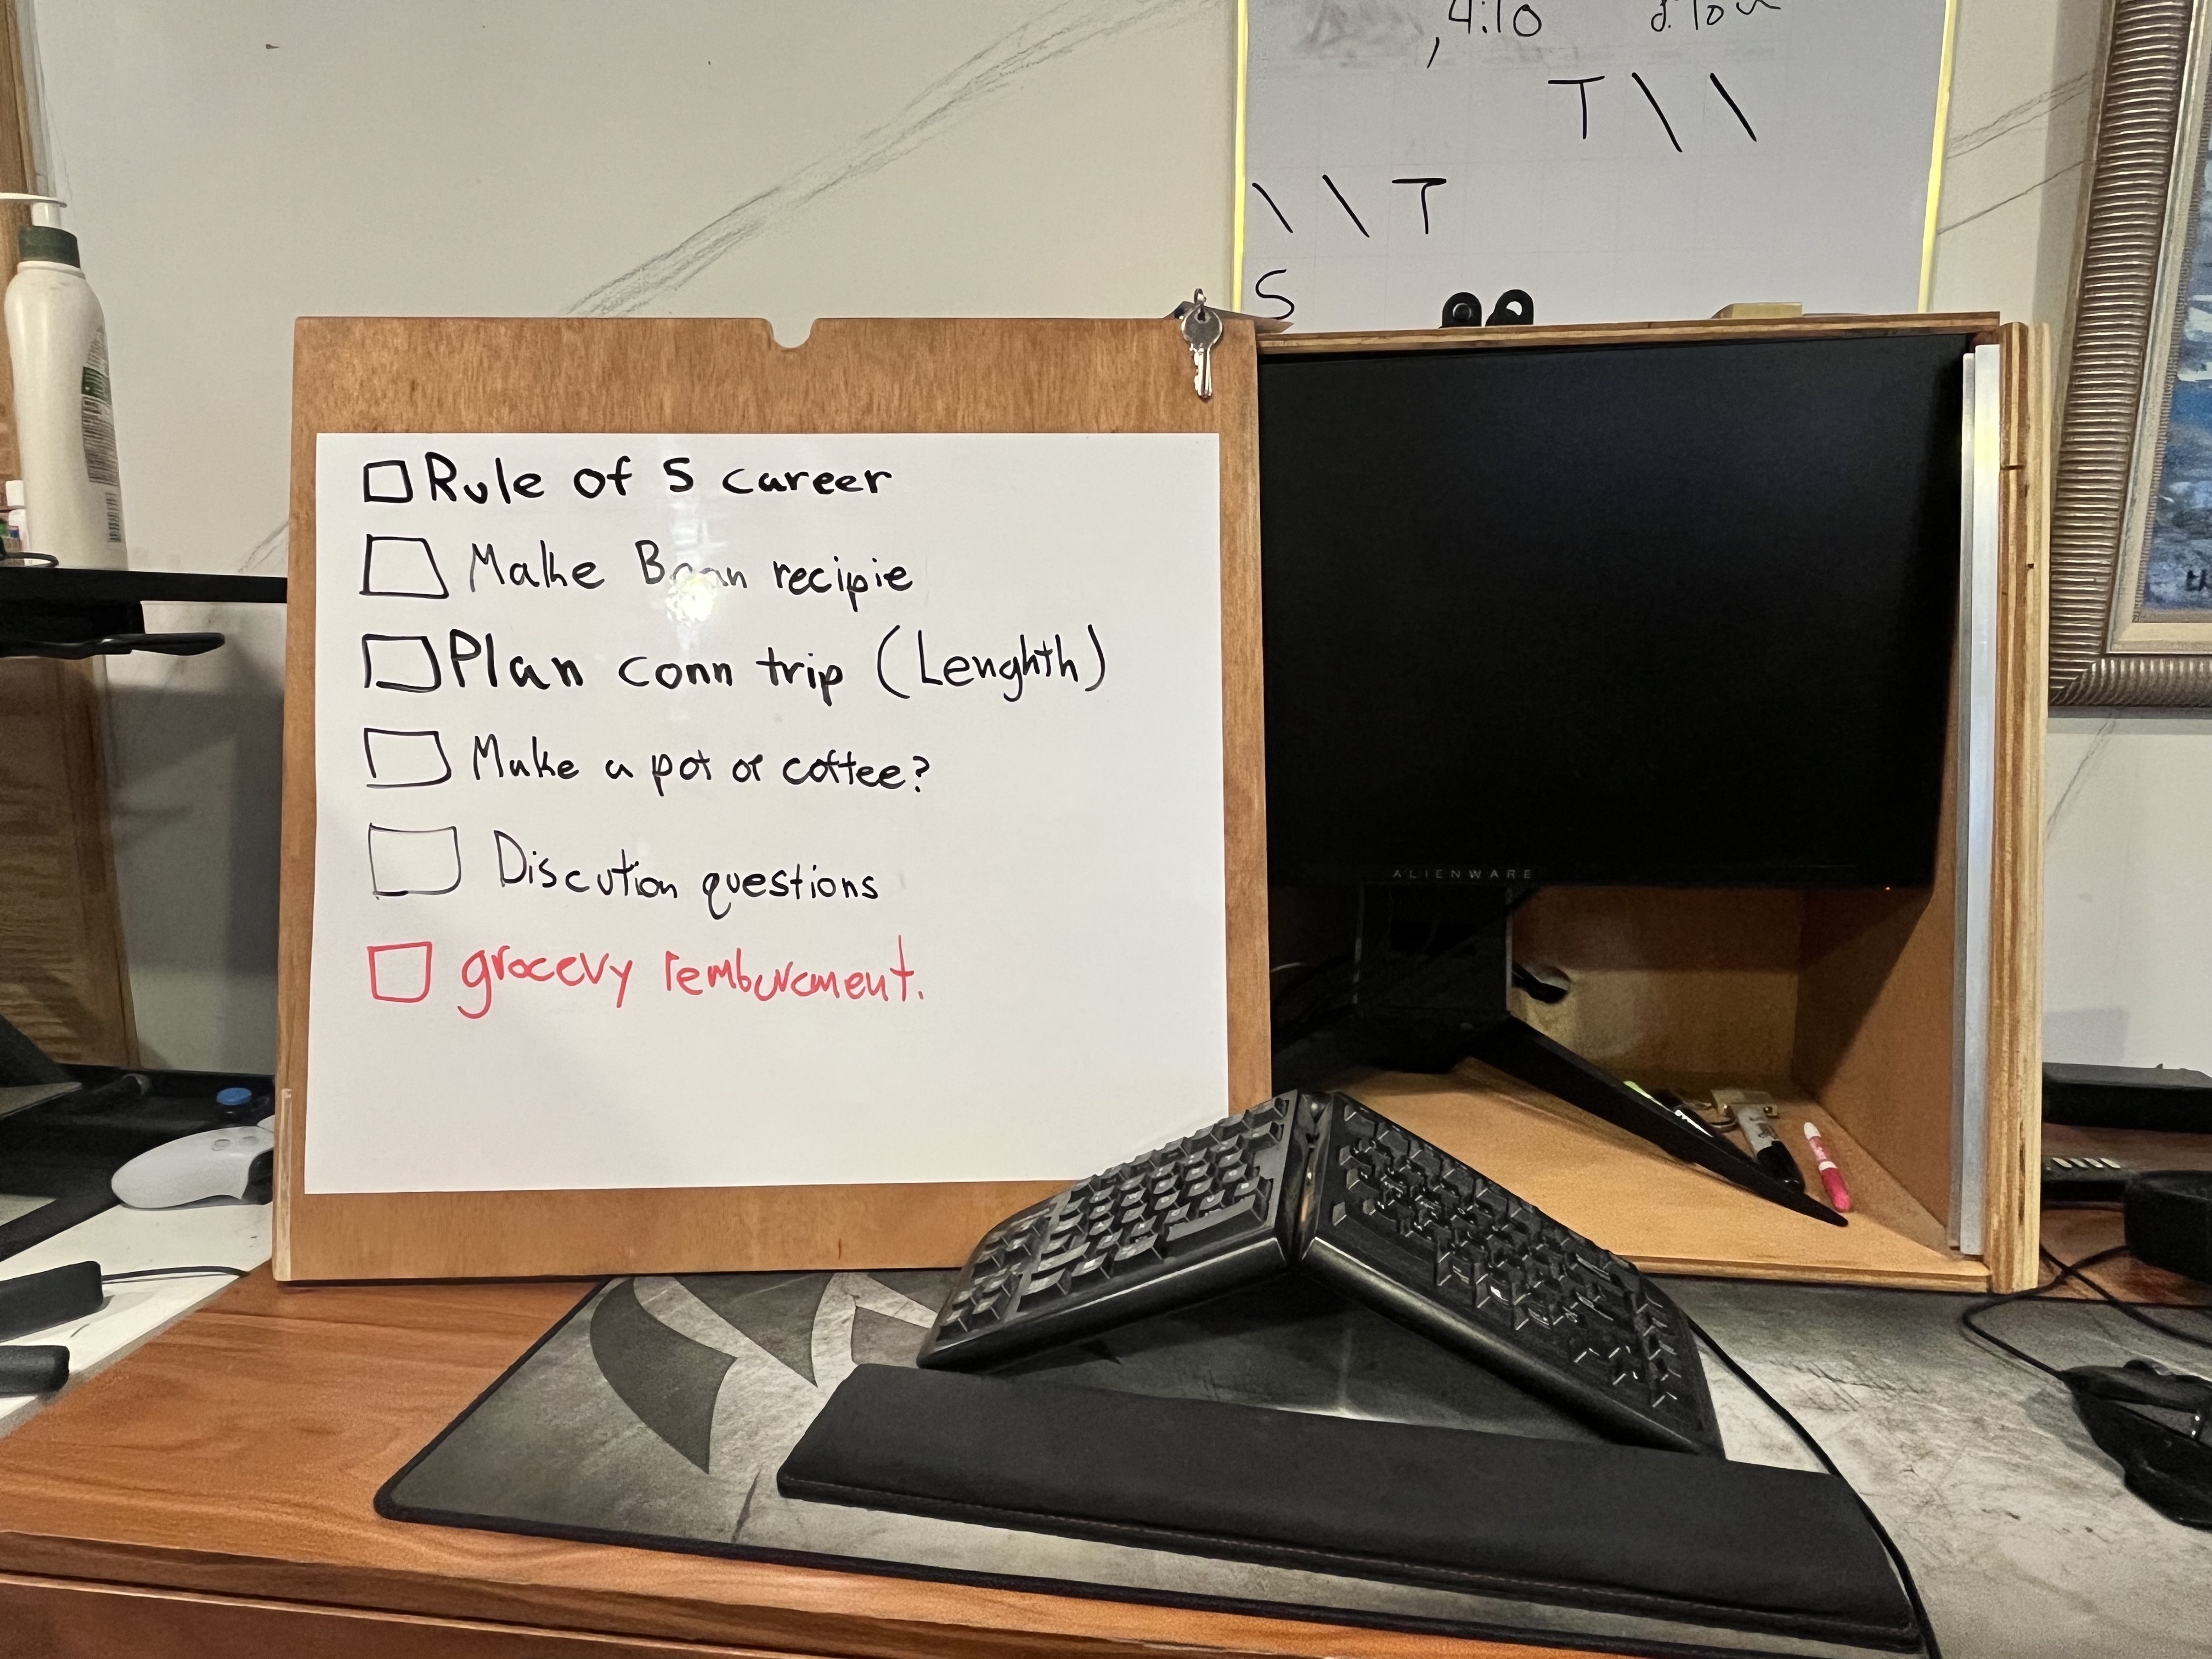 4:10
T \ \
\ \ T
S
Rule of 5 career
Make Bean recipie
Plan conn trip (Lenghth)
Make a pot of coffee?
Discution questions
grocery remburcment.
ALIENWARE